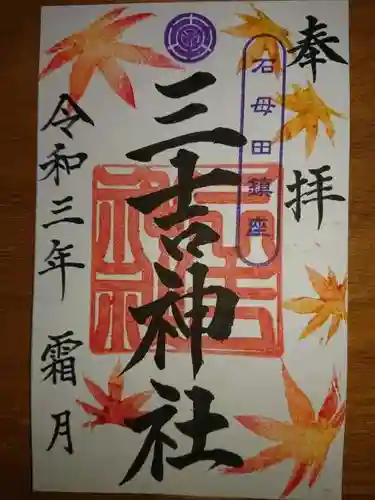 奉拝
石母田鎮座
三吉神社
令和三年 霜月